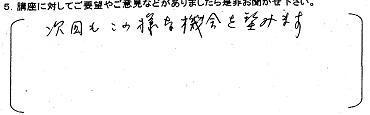 5. 講座に対してご要望やご意見などがありましたら是非お聞かせ下さい。
次回もこの様な機会を望みます